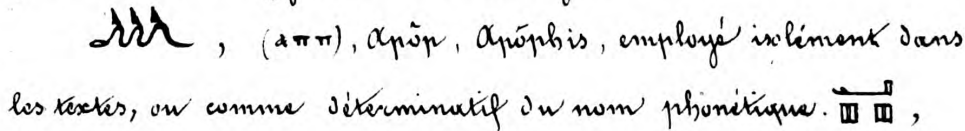 , (ⲁⲡⲡ), Apōp, Apōphis, employé isolément dans
les textes, ou comme déterminatif du nom phonétique. 𓂝𓊪𓊪,